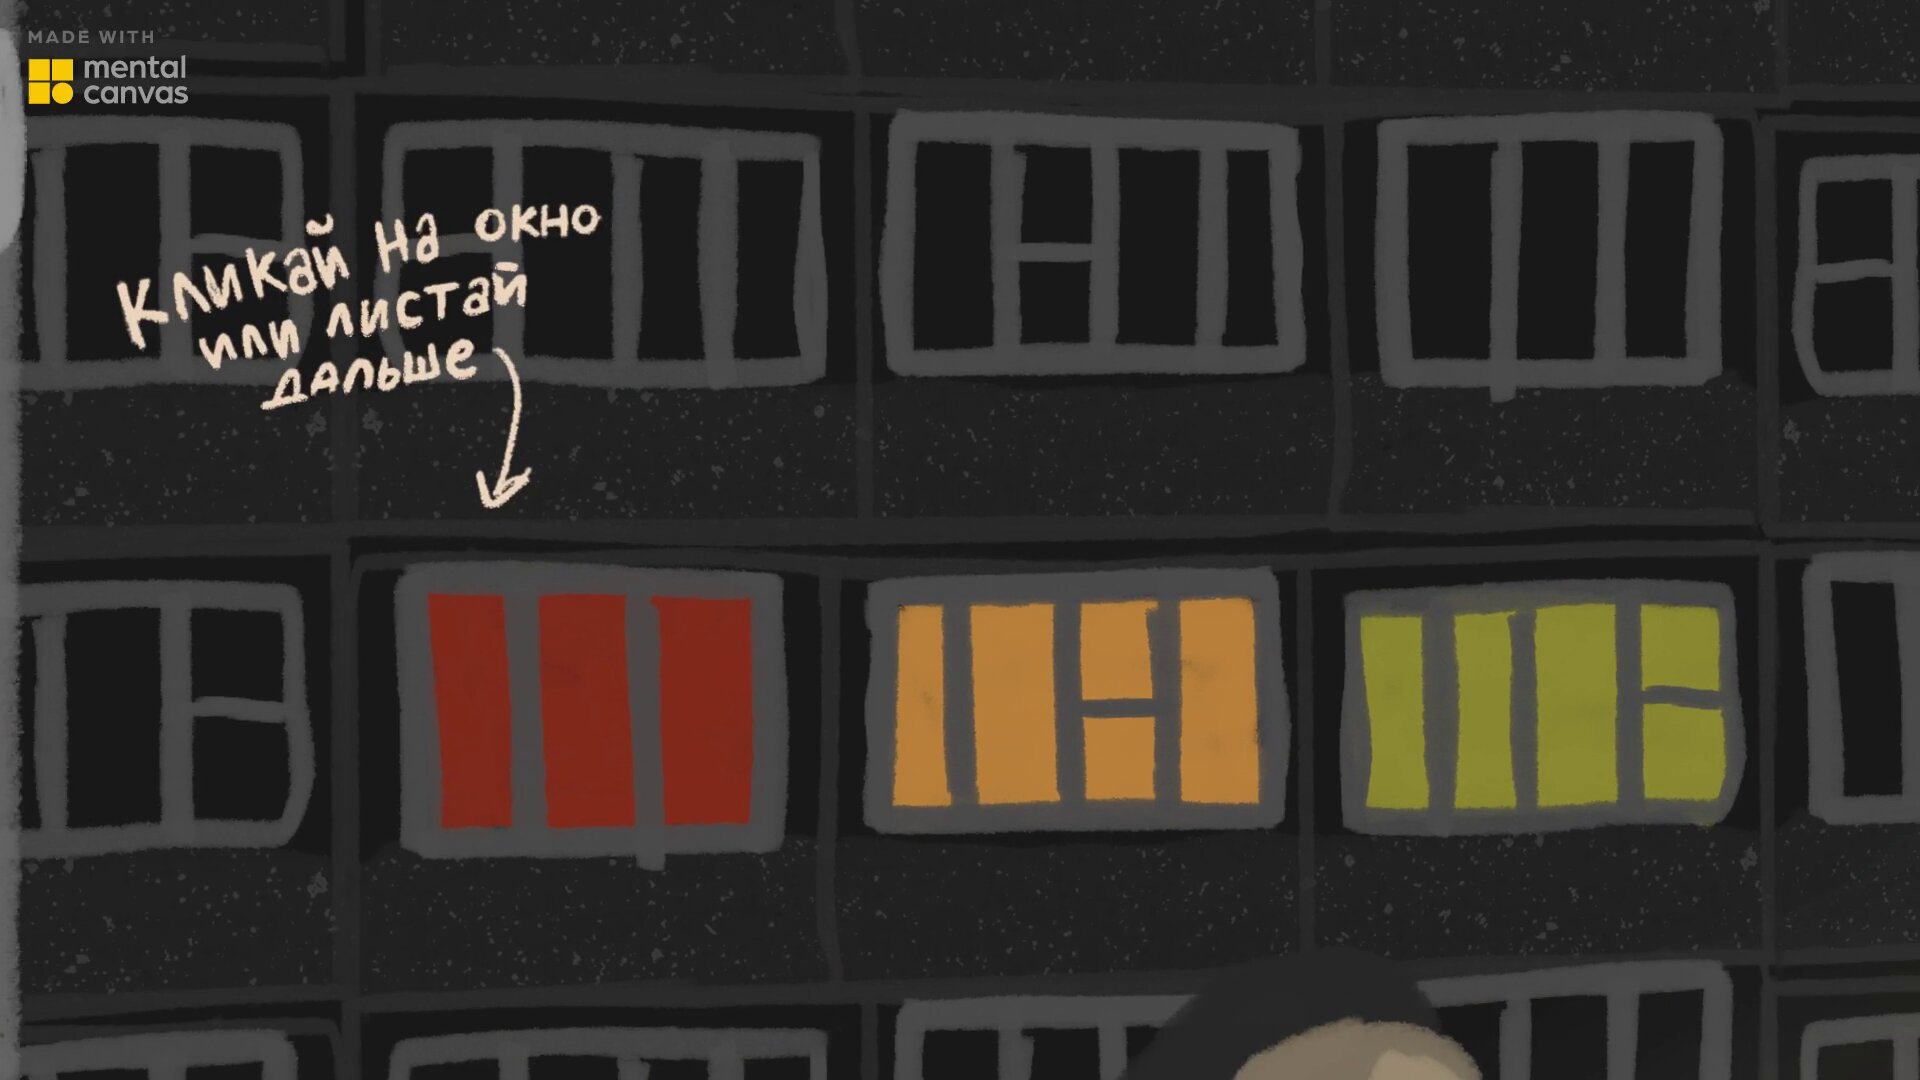 MADE WITH
mental
canvas
Кликай на окно
или листай
дальше